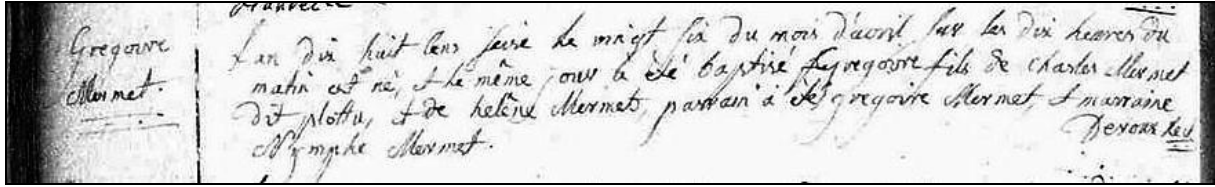 Gregoire
Mermet.
L'an dix huit cens seise le vingt six du mois d'avril sur les dix heures du
matin est né, et le même jour a été baptisé gregoire fils de Charles Mermet
dit plottu, et de helêne Mermet, parrain à été gregoire Mermet, et marraine
Nymphe Mermet.